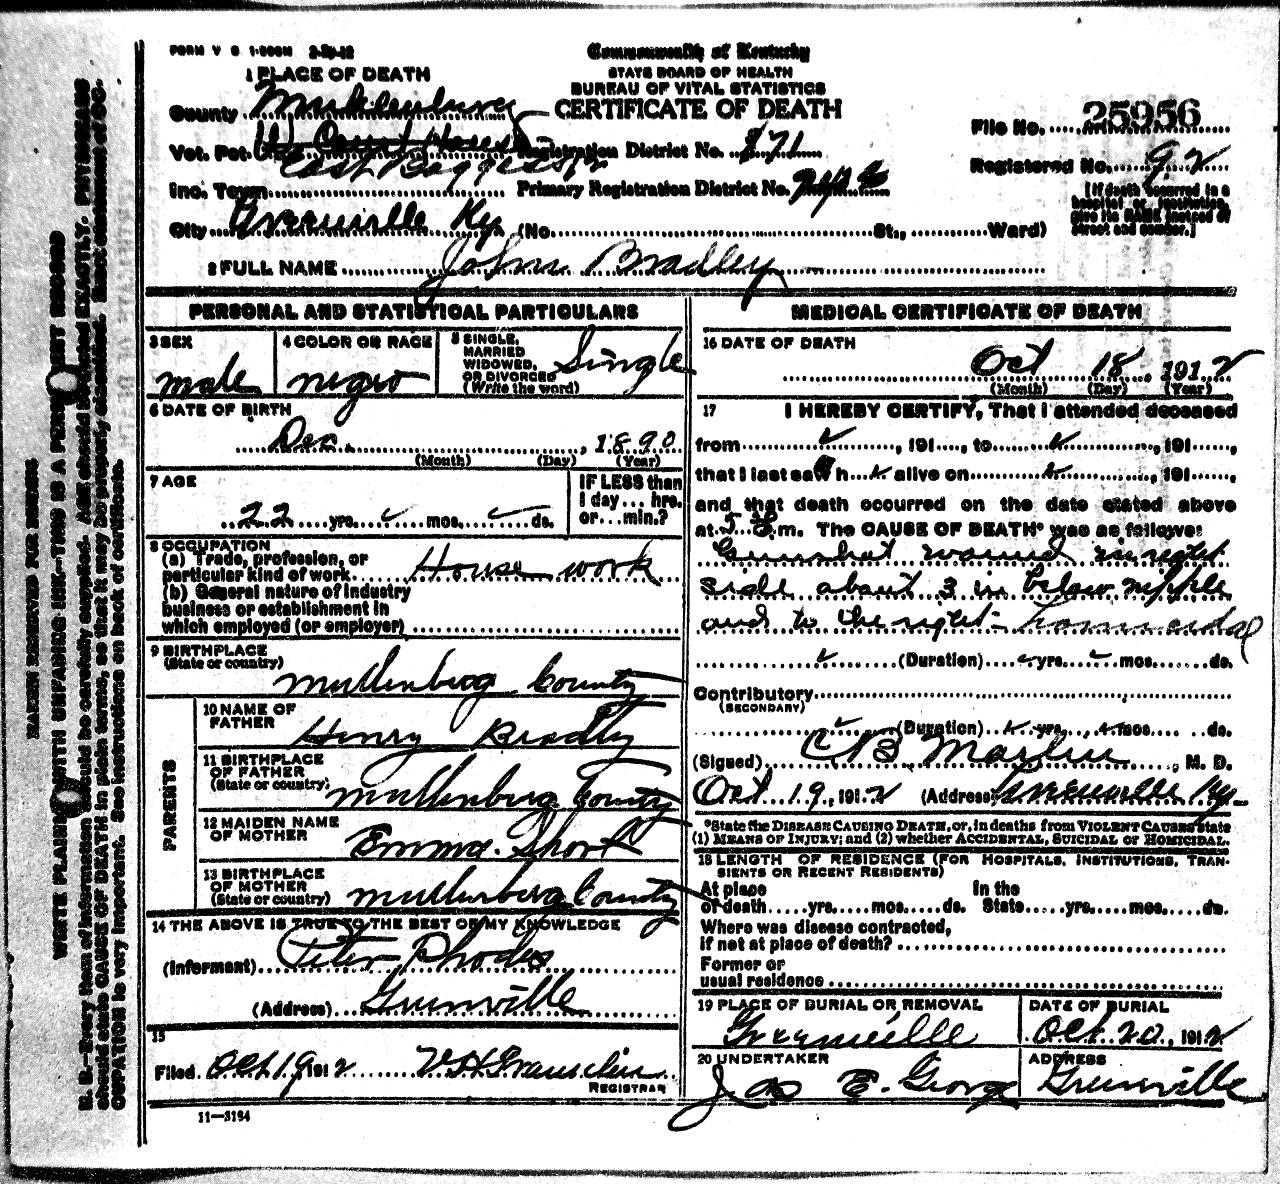 FORM V S 1-500M 2-20-12
Commonwealth of Kentucky
STATE BOARD OF HEALTH
BUREAU OF VITAL STATISTICS
CERTIFICATE OF DEATH
1 PLACE OF DEATH
County Muhlenburg
Vot. Pct. W Court House Registration District No. 871
East
Inc. Town Primary Registration District No.
City Greenville Ky (No. St., Ward)
File No. 25956
Registered No. 92
[If death occurred in a hospital or institution, give its NAME instead of street and number.]
2 FULL NAME John Bradley
PERSONAL AND STATISTICAL PARTICULARS
3 SEX male
4 COLOR OR RACE negro
5 SINGLE, MARRIED WIDOWED, OR DIVORCED (Write the word) Single
6 DATE OF BIRTH
Dec. , 1890
(Month) (Day) (Year)
7 AGE
22 yrs. mos. ds.
IF LESS than 1 day... hrs. or... min.?
8 OCCUPATION
(a) Trade, profession, or particular kind of work House work
(b) General nature of industry business or establishment in which employed (or employer)
9 BIRTHPLACE (State or country) Muhlenberg County
PARENTS
10 NAME OF FATHER Henry Bradley
11 BIRTHPLACE OF FATHER (State or country) Muhlenberg County
12 MAIDEN NAME OF MOTHER Emma. Short
13 BIRTHPLACE OF MOTHER (State or country) Muhlenberg County
14 THE ABOVE IS TRUE TO THE BEST OF MY KNOWLEDGE
(Informant) Peter Rhodes
(Address) Greenville
15
Filed Oct 19 1912
REGISTRAR
11—3184
MEDICAL CERTIFICATE OF DEATH
16 DATE OF DEATH
Oct 18, 1912
(Month) (Day) (Year)
17 I HEREBY CERTIFY, That I attended deceased
from , 191 , to , 191 ,
that I last saw h alive on , 191 ,
and that death occurred on the date stated above
at 5 m. The CAUSE OF DEATH* was as follows:
Gunshot wound in right
side about 3 in below nipple
and to the right - homicidal
(Duration) yrs. mos. ds.
Contributory
(SECONDARY)
(Duration) yrs. mos. ds.
(Signed) C B Martin, M. D.
Oct 19, 1912 (Address) Greenville Ky.
*State the DISEASE CAUSING DEATH, or, in deaths from VIOLENT CAUSES state
(1) MEANS OF INJURY; and (2) whether ACCIDENTAL, SUICIDAL OR HOMICIDAL.
18 LENGTH OF RESIDENCE (FOR HOSPITALS, INSTITUTIONS, TRANSIENTS OR RECENT RESIDENTS)
At place of death yrs. mos. ds. In the State yrs. mos. ds.
Where was disease contracted, if not at place of death?
Former or usual residence
19 PLACE OF BURIAL OR REMOVAL Greenville
DATE OF BURIAL Oct. 20, 1912
20 UNDERTAKER Jas E. George
ADDRESS Greenville
MARGIN RESERVED FOR BINDING
WRITE PLAINLY WITH UNFADING INK—THIS IS A PERMANENT RECORD
N. B.—Every item of information should be carefully supplied. AGE should be stated EXACTLY. PHYSICIANS
should state CAUSE OF DEATH in plain terms, so that it may be properly classified. Exact statement of OC-
CUPATION is very important. See instructions on back of certificate.